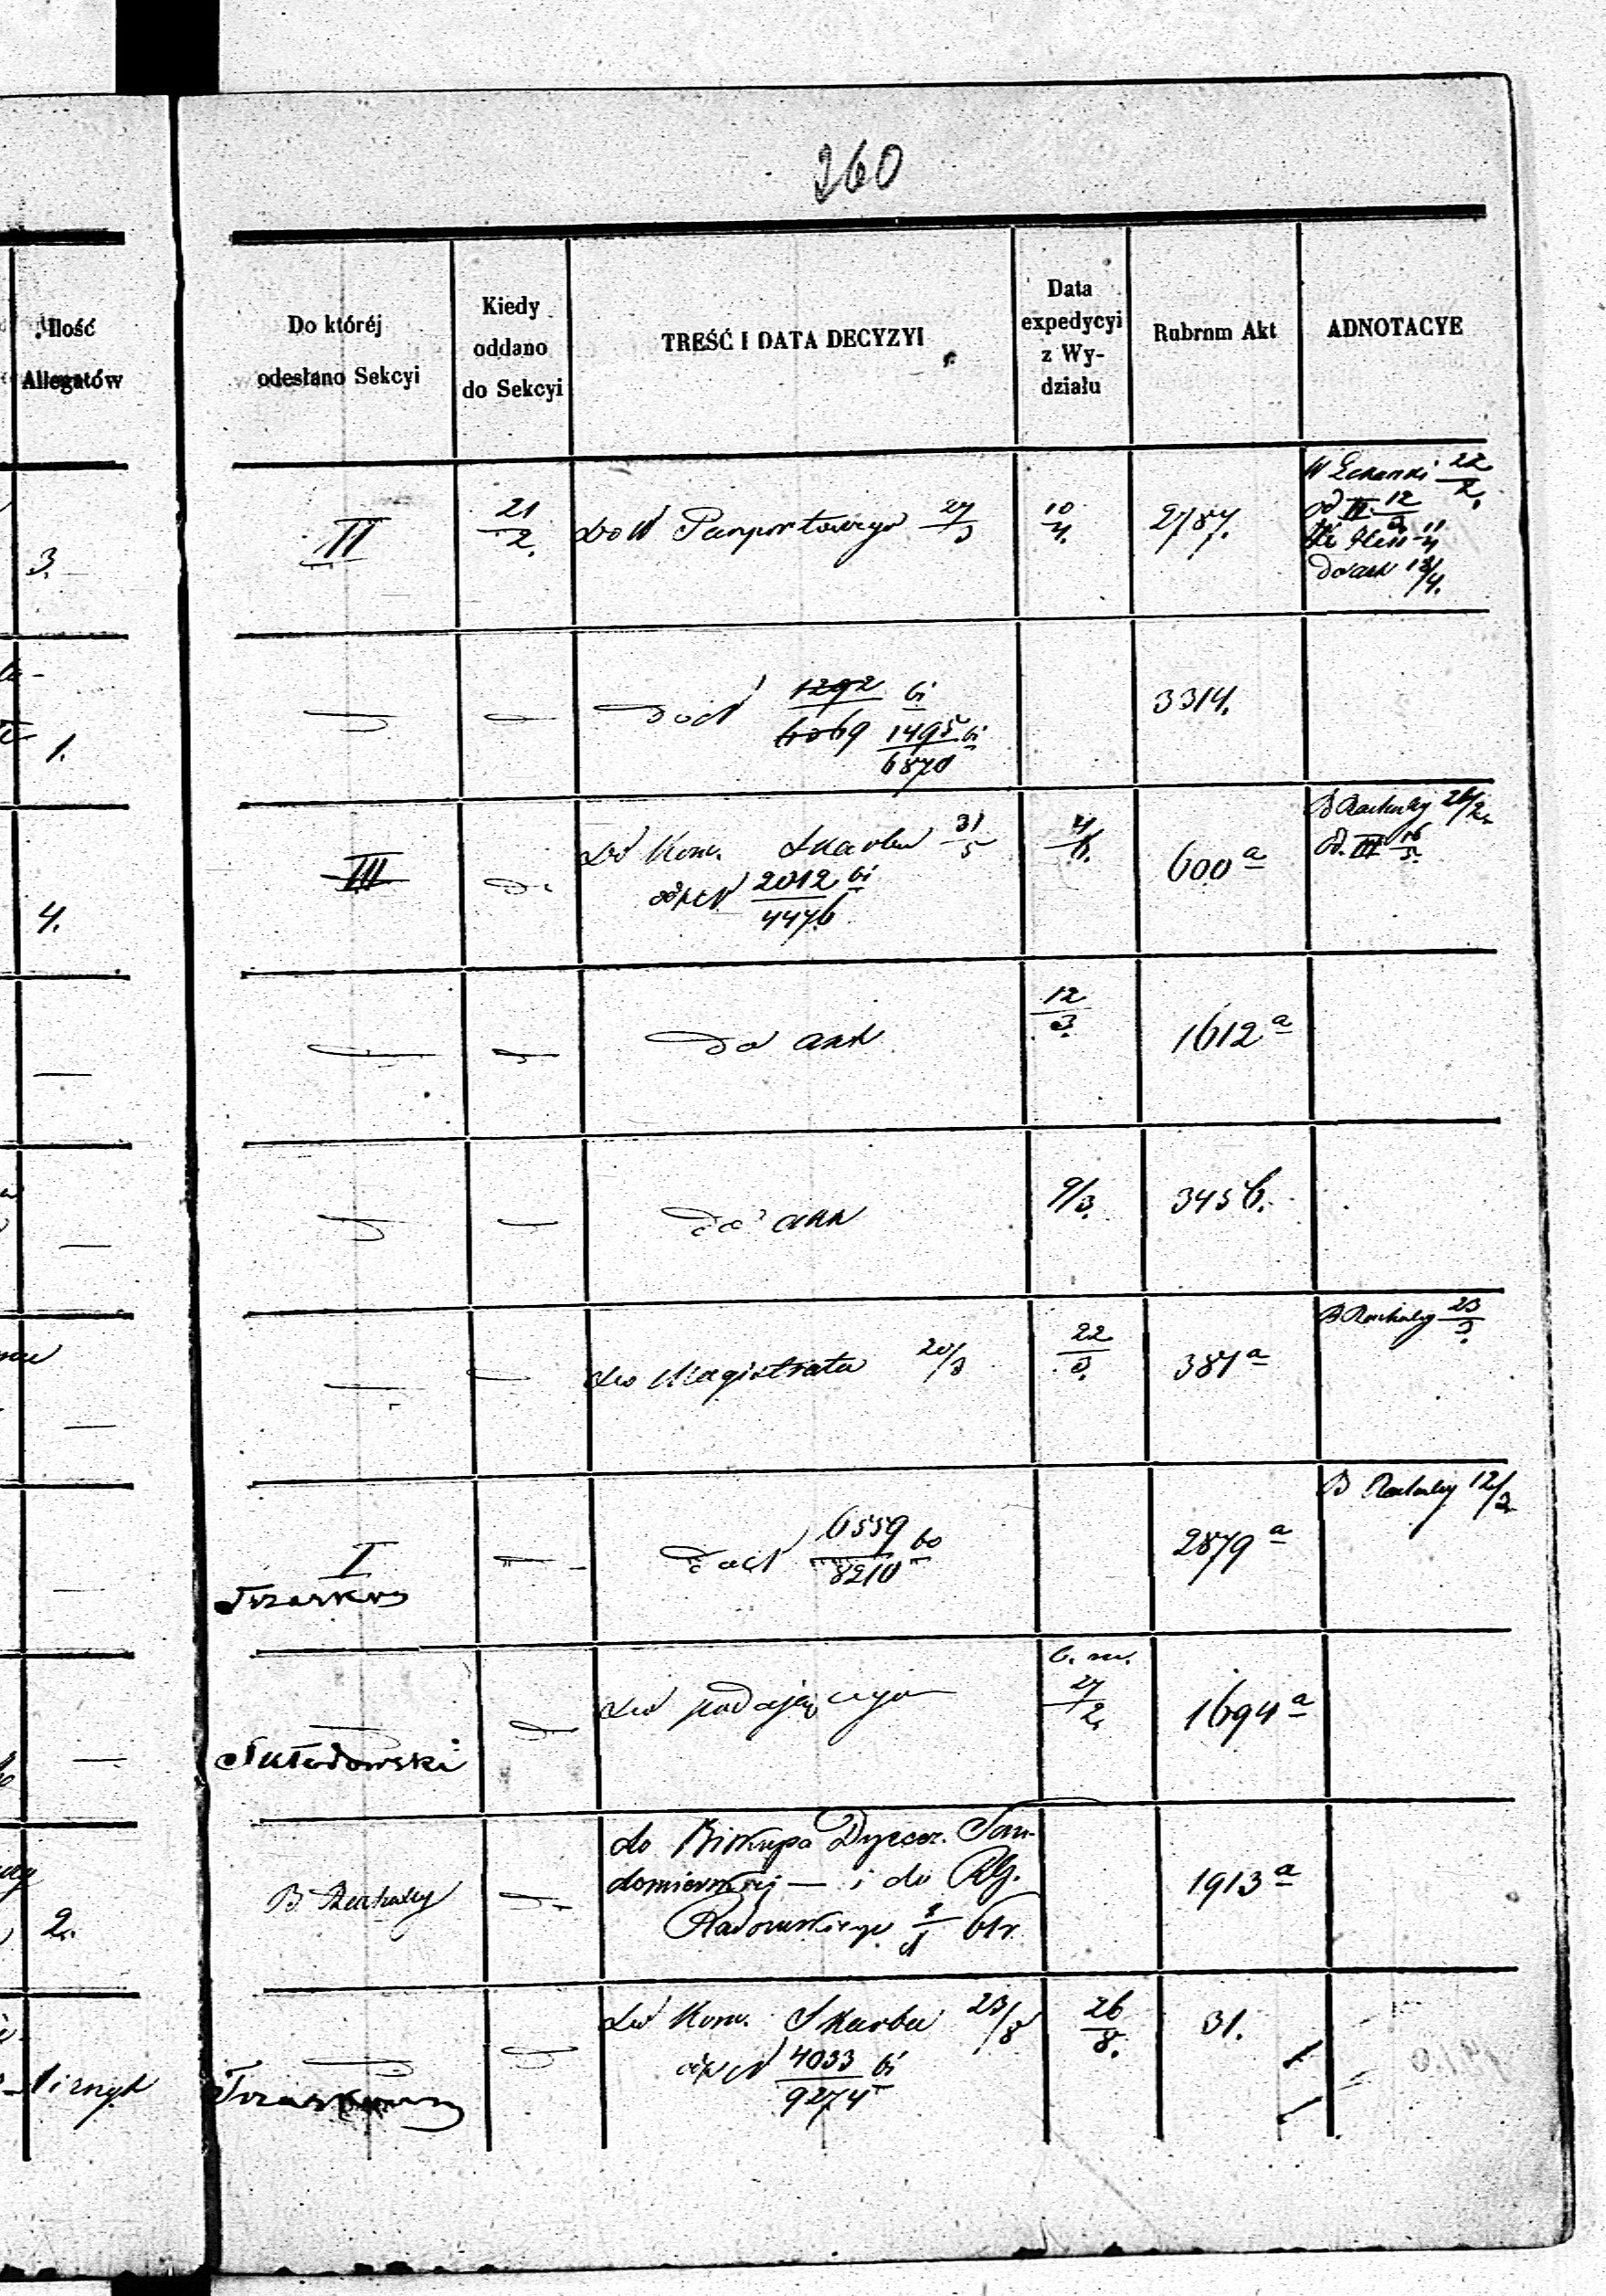 260
Ilość
Allegatów
Do któréj
odesłano Sekcyi
Kiedy
oddano
do Sekcyi
TREŚĆ I DATA DECYZYI
Data
expedycyi
z Wy-
działu
Rubrnm Akt
ADNOTACYE
3.
II
21/2.
do W Pasportowego 27/3
10/4.
2787.
22/2.
od III 12/3
11/4
do akt 13/4.
1.
do N 1292/6069 bi
1495/6870 bi
3314.
4.
III
do Kom. Skarbu 31/5
2012/4476 bi
4/6.
600 a
B Rachuby 26/2.
od. III 16/5.
do akt
12/3.
1612 a
do akt
9/3.
3456.
do Magistratu 20/3
22/3.
381 a
B Rachuby 23/3.
I
do N 6559/8210 bo
2879 a
B Rachuby 12/3
do podającego
b. m.
27/2.
1694 a
2.
B Rachuby
do Biskupa Dyecez. San-
domierskiej — i do Rz.
Radomskiego 61 r
1913 a
do Kom. Skarbu 23/8
4033/9274 bi
26/8.
31.